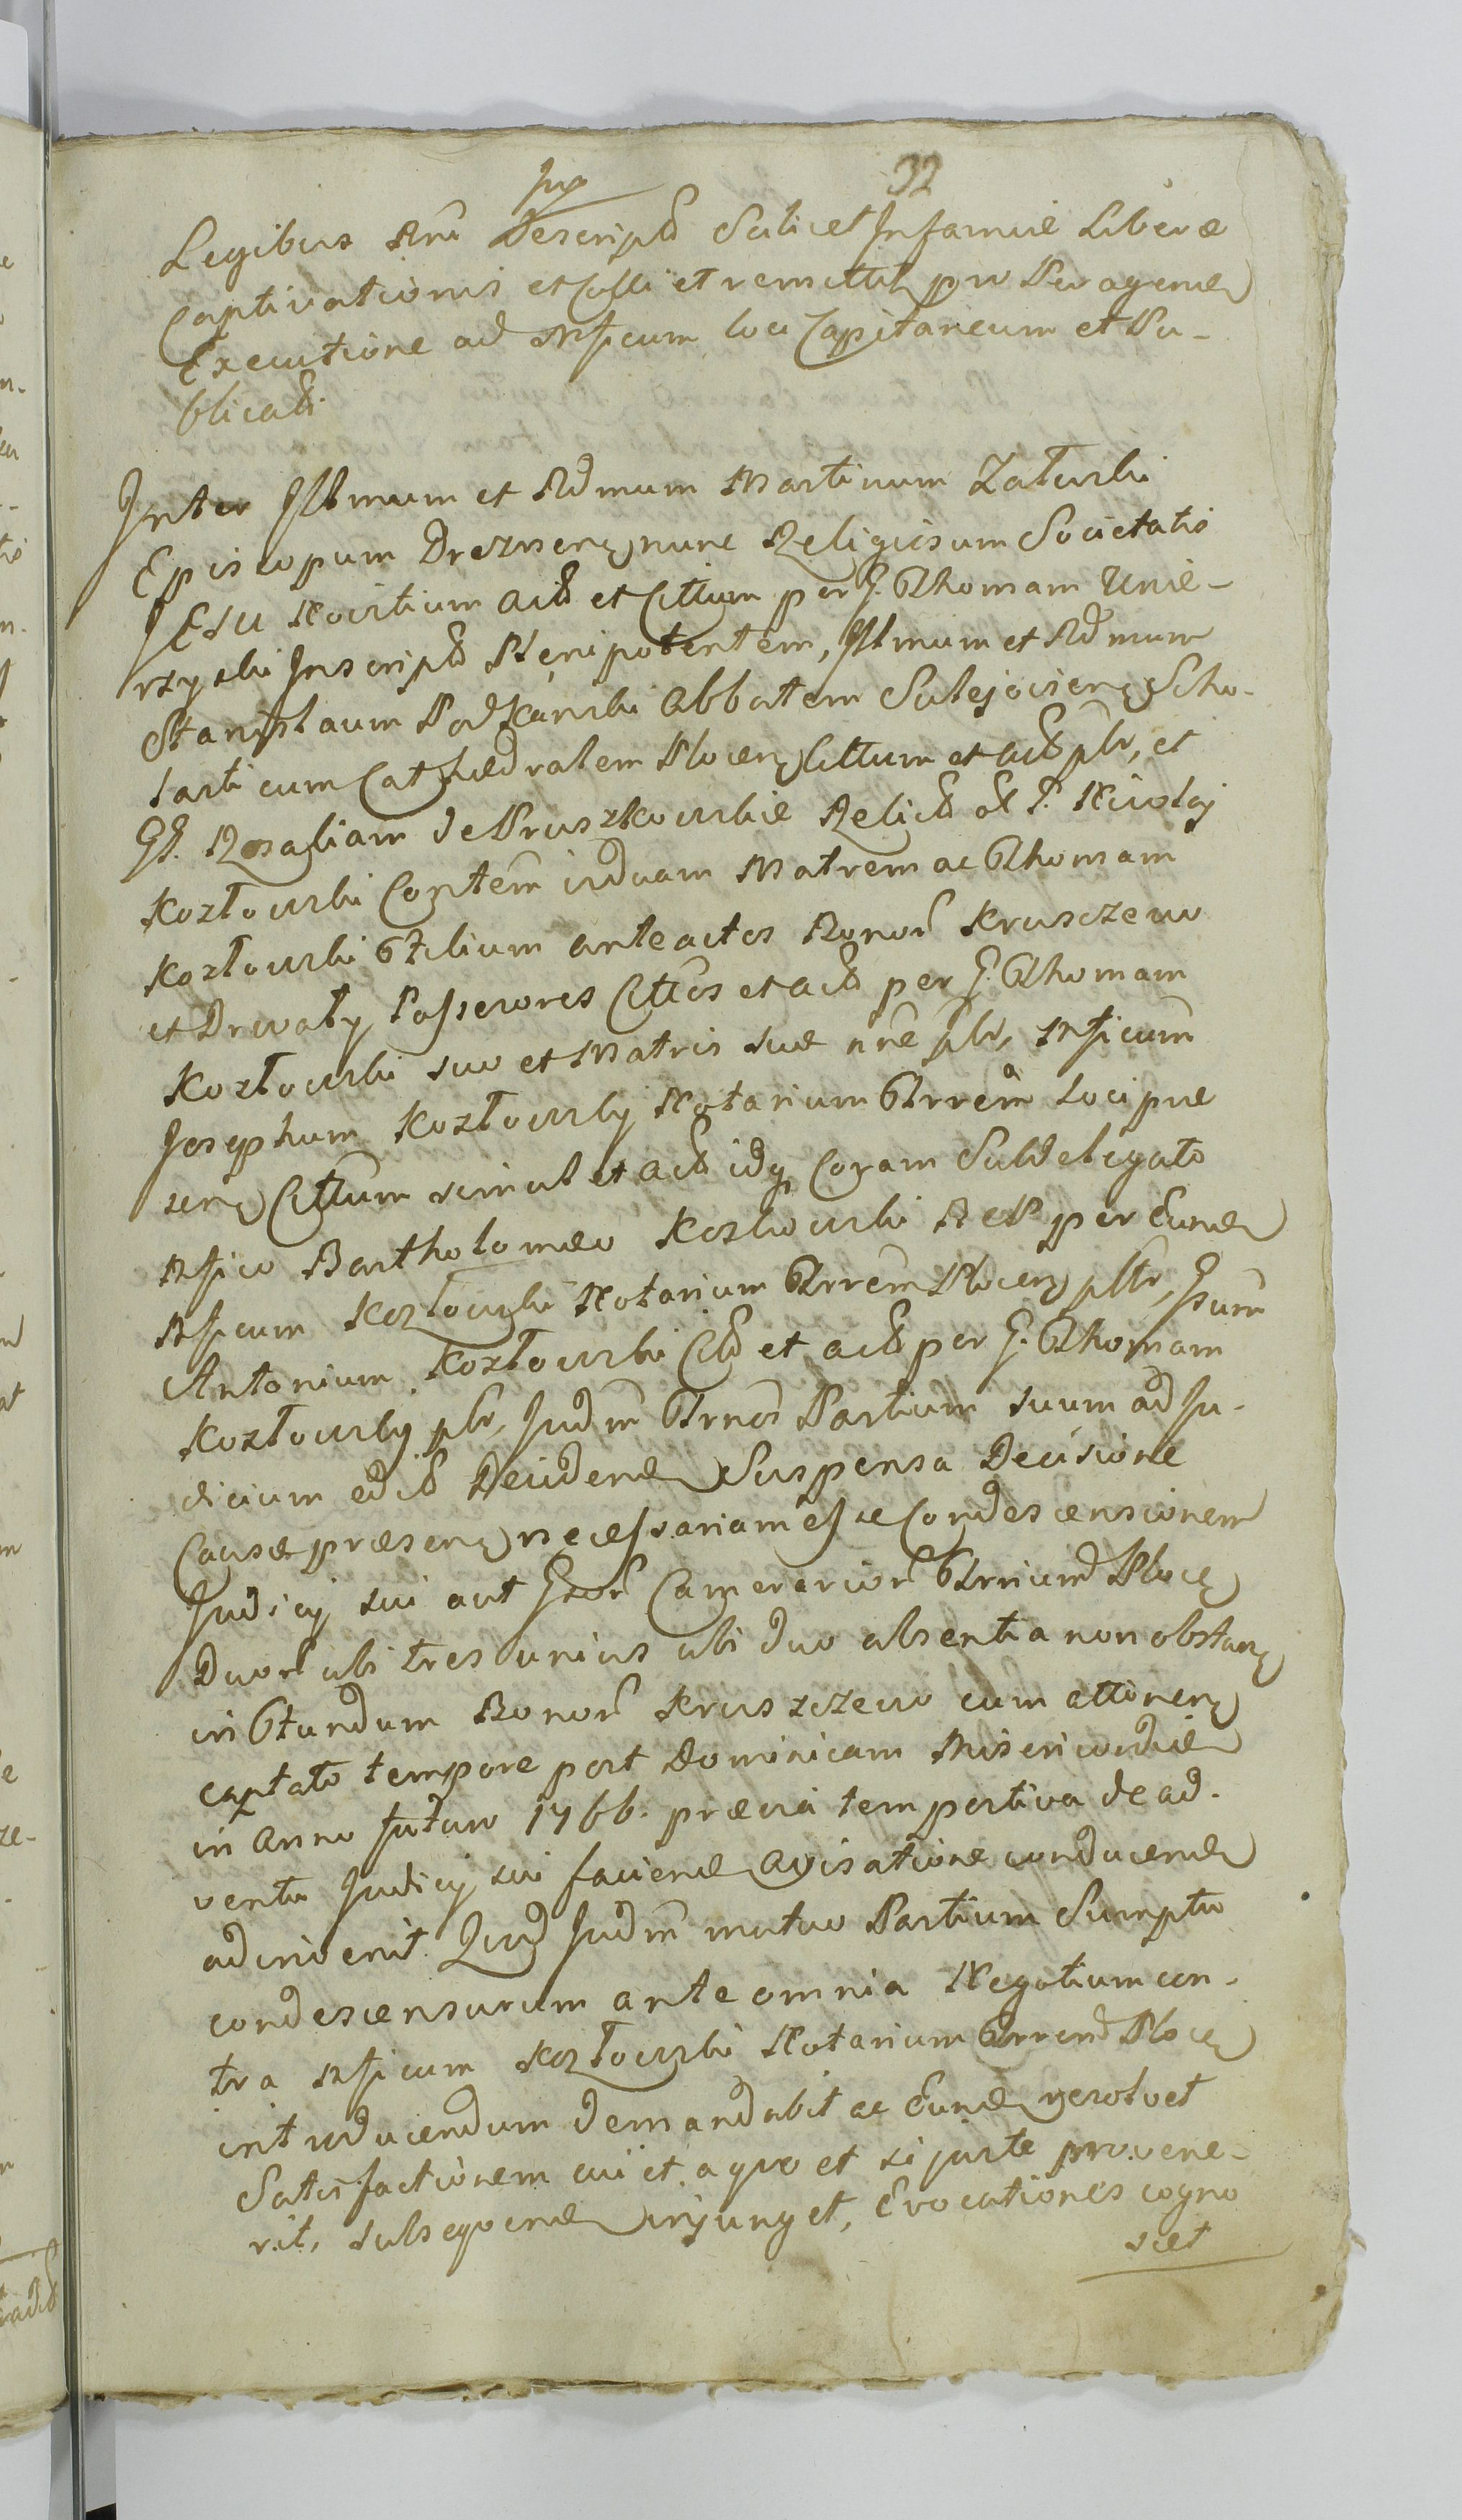 32
Legibus Rni Descript Scilicet Infamiæ Liberæ
Captivationis et Colli et remittit pro Peragend
Executione ad Mficum loci Capitaneum et Pu-
blicatt
Inter Illmum et Rdmum Martinum Załuski
Episcopum Draznenę nunc Religiosum Societatis
JESU Novitium Act et Cittum per G. Thomam Unie-
rzyski Inscript Plenipotentem, Illmum et Rdmum
Stanislaum Podkański Abbatem Sulejovienę Scho-
lasticum Cathædralem Plocenę Cittum et Act pltr, et
GG. Rosaliam de Pruszkowskie Relict ol G. Nicolaj
Kozłowski Contem viduam Matrem ac Thomam
Kozłowski Filium anteactos Bonor Krusczewo
et Drwały Possessores Cittos et act per G. Thomam
Kozłowski suo et Matris suæ nne pltr, Mficum
Josephum Kozłowsky Notarium Trrem loci præ
senę Cittum simul et act idq Coram Subdelegato
Mfico Bartholomæo Kozłowski RP per Eund
Mficum Kozłowski Notarium Trrem Plocenę pltr, Gsum
Antonium Kozłowski Citt et act per G. Thomam
Kozłowsky pltr, Judm Trnos Partium suum ad Ju-
dicium edict Decidend Suspensa Decisione
Causæ præsenę necessariam esse Condescensionem
Judicij sui aut Gsor Camerarior Trrium Plocę
Duor ubi tres unius ubi duo absentia non obstanę
in Fundum Bonor Kruszczewo cum attinenę
captato tempore post Dominicam Misericordiæ
in Anno futuro 1766. prævia tempestiva de ad-
ventu Judicij sui faciend avisatione conducend
adinvenit. Quod Judm mutuo Partium Sumptu
condescensurum ante omnia Negotium con-
tra Mficum Kozłowski Notarium Trrem Plocę
introducendum demandabit ac Eund resolvet
Satisfactionem cui et a quo et si juste provene-
rit, subsequend injunget, Evocationes cogno
scet